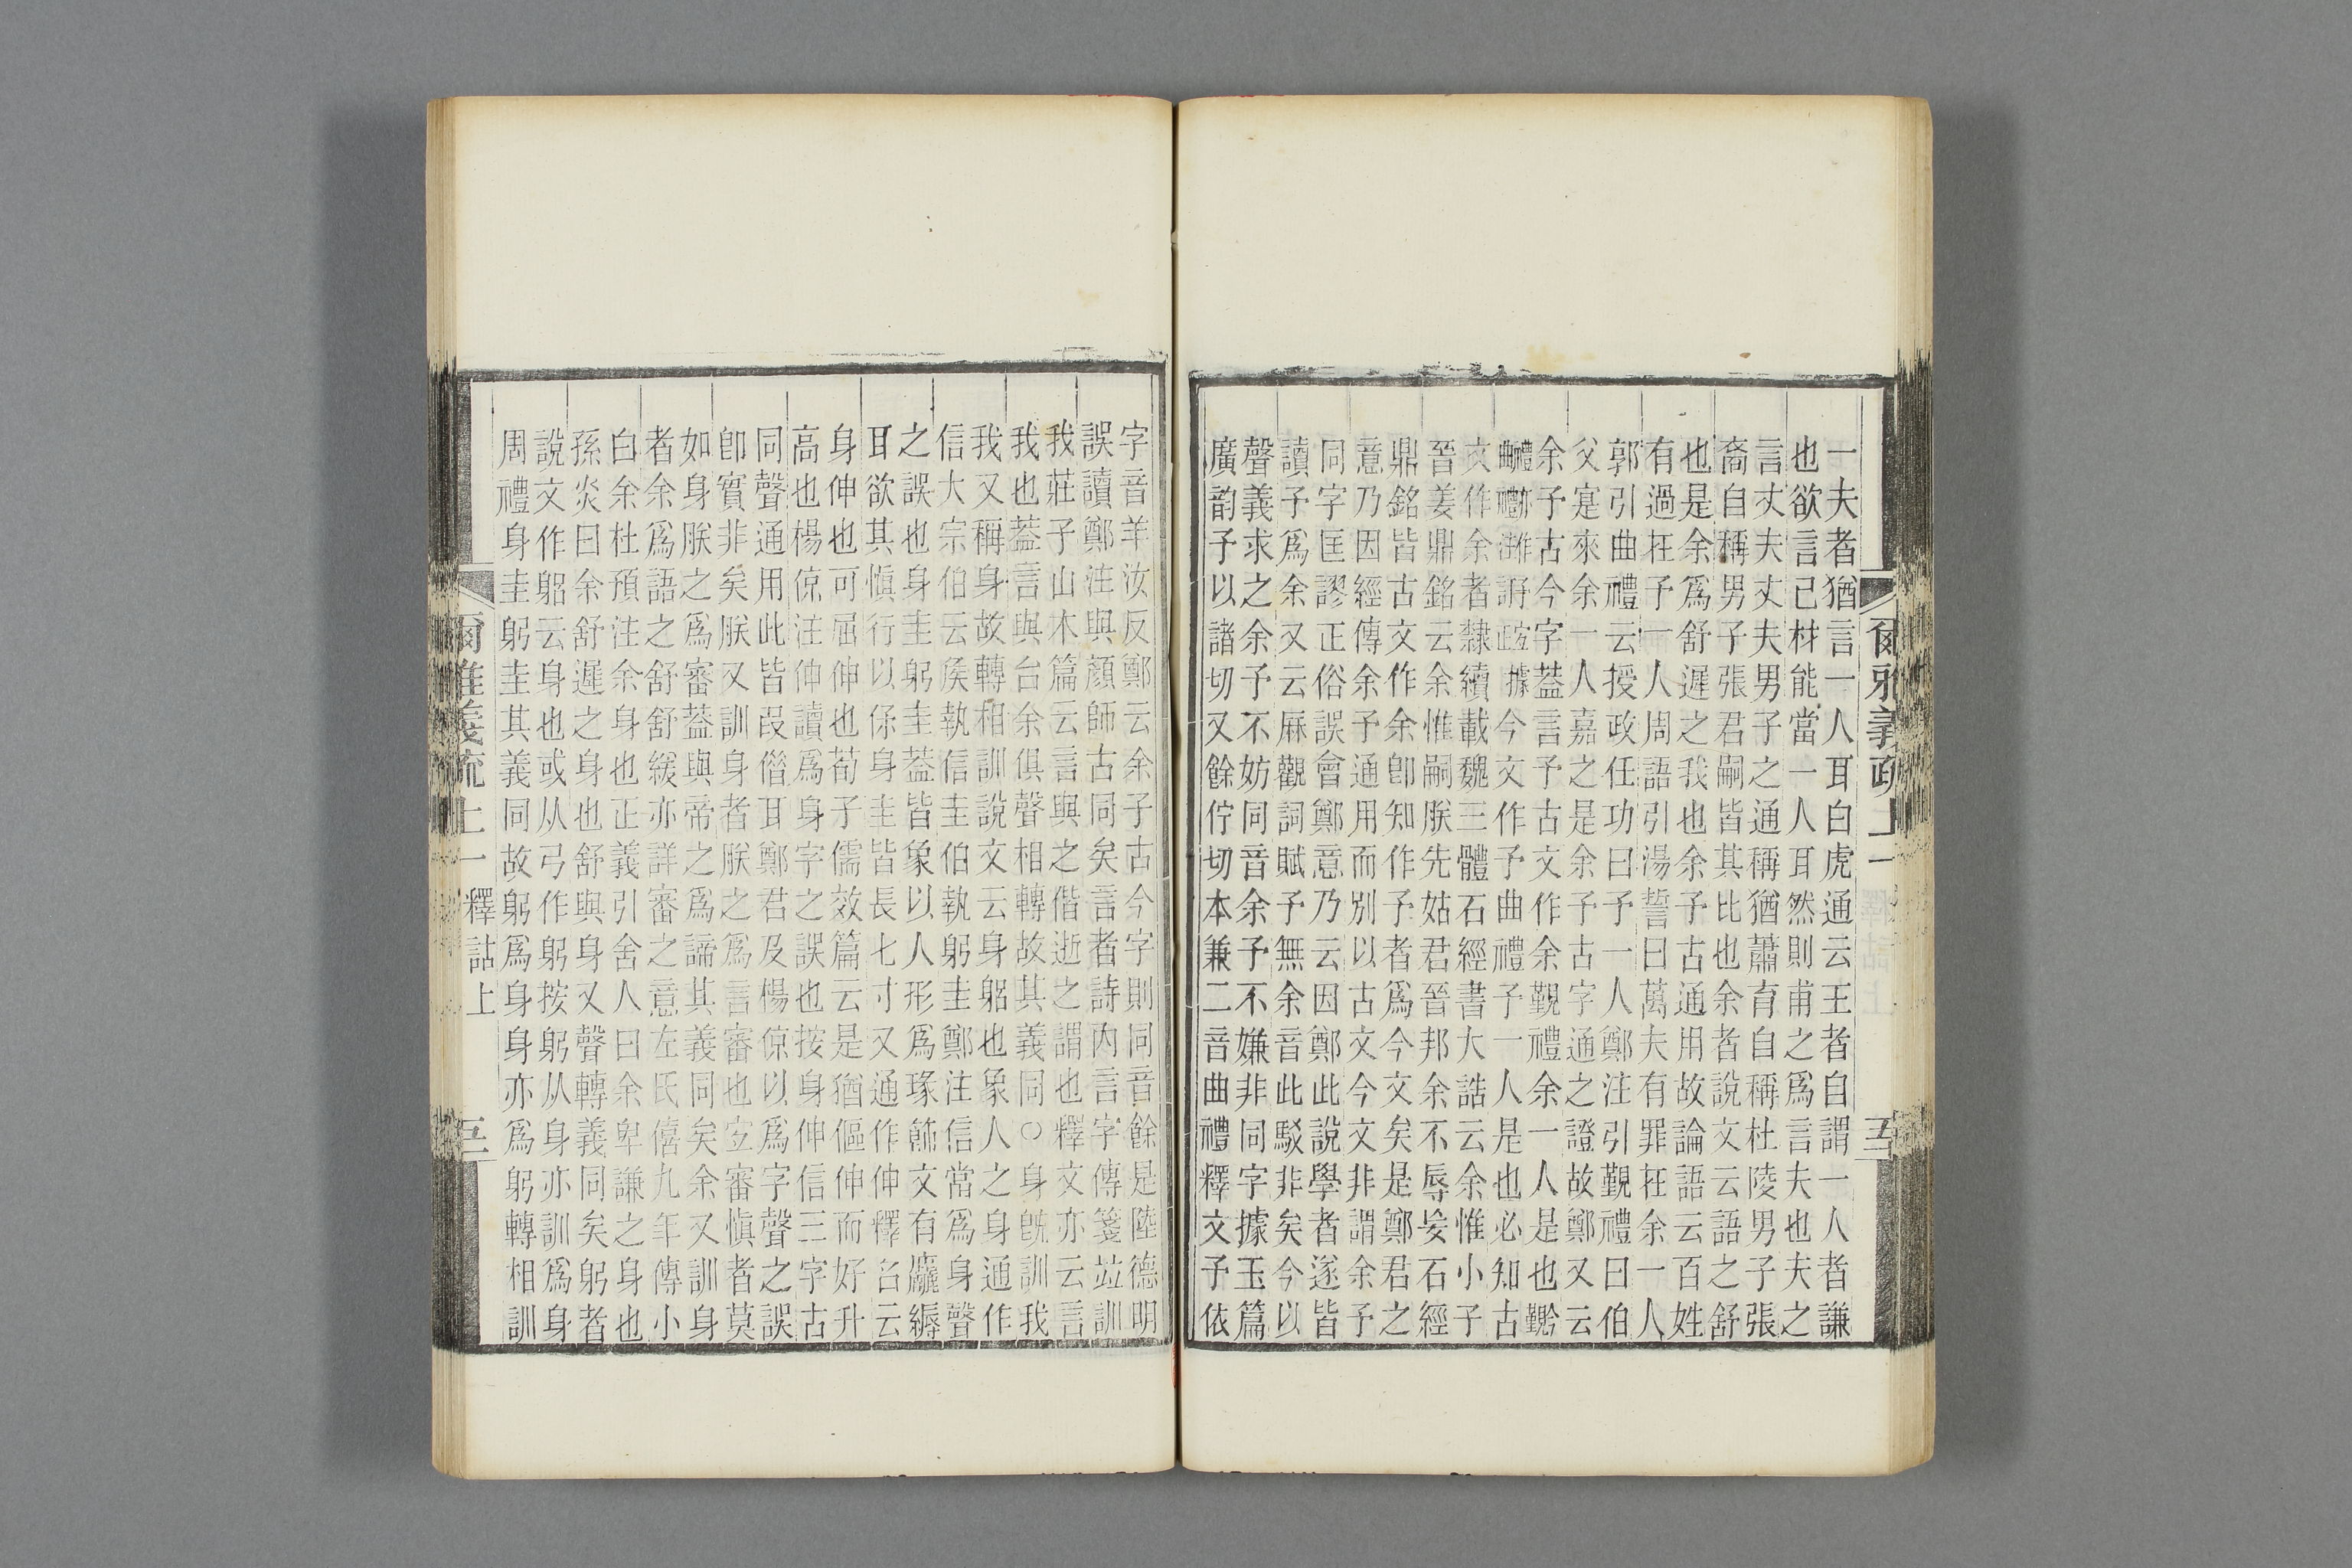 爾雅義疏上一
釋詁上
一夫者猶言一人耳白虎通云王者自謂一人者謙
也欲言己材能當一人耳然則甫之爲言夫也夫之
言丈夫丈夫男子之通稱猶蕭育自稱杜陵男子張
裔自稱男子張君嗣皆其比也余者說文云語之舒
也是余爲舒遲之我也余予古通用故論語云百姓
有過在予一人周語引湯誓曰萬夫有罪在余一人
郭引曲禮云授政任功曰予一人鄭注引覲禮曰伯
父寔來余一人嘉之是余予古字通之證故鄭又云
余予古今字蓋言予古文作余覲禮余一人是也
今文作予曲禮予一人是也必知古
文作余者隸續載魏三體石經書大誥云余惟小子
晉姜鼎銘云余惟嗣朕先姑君晉邦余不辱妄石經
鼎銘皆古文作余卽知作予者爲今文矣是鄭君之
意乃因經傳余予通用而別以古文今文非謂余予
同字匡謬正俗誤會鄭意乃云因鄭此說學者遂皆
讀予爲余又云厤觀詞賦予無余音此駁非矣今以
聲義求之余予不妨同音余予不嫌非同字據玉篇
廣韵予以諸切又餘佇切本兼二音曲禮釋文予依
字音羊汝反鄭云余予古今字則同音餘是陸德明
誤讀鄭注與顏師古同矣言者詩內言字傳箋竝訓
我莊子山木篇云言與之偕逝之謂也釋文亦云言
我也葢言與台余俱聲相轉故其義同○身旣訓我
我又稱身故轉相訓說文云身躳也象人之身通作
信大宗伯云侯執信圭伯執躬圭鄭注信當爲身聲
之誤也身圭躬圭葢皆象以人形爲瑑飾文有麤縟
耳欲其愼行以保身圭皆長七寸又通作伸釋名云
身伸也可屈伸也荀子儒效篇云是猶傴伸而好升
高也楊倞注伸讀爲身字之誤也按身伸信三字古
同聲通用此皆叚僭耳鄭君及楊倞以爲字聲之誤
卽實非矣朕又訓身者朕之爲言審也宐審愼者莫
如身朕之爲審葢與帝之爲諦其義同矣余又訓身
者余爲語之舒舒緩亦詳審之意左氏僖九年傳小
白余杜預注余身也正義引舍人曰余卑謙之身也
孫炎曰余舒遲之身也舒與身又聲轉義同矣躬者
說文作躳云身也或从弓作躬按躬从身亦訓爲身
周禮身圭躬圭其義同故躬爲身身亦爲躬轉相訓
爾雅義疏上一
釋詁上